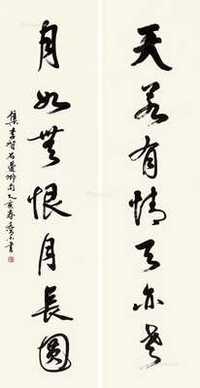 天若有情天亦老
月如無恨月長圓
集李賀石曼卿句乙亥春